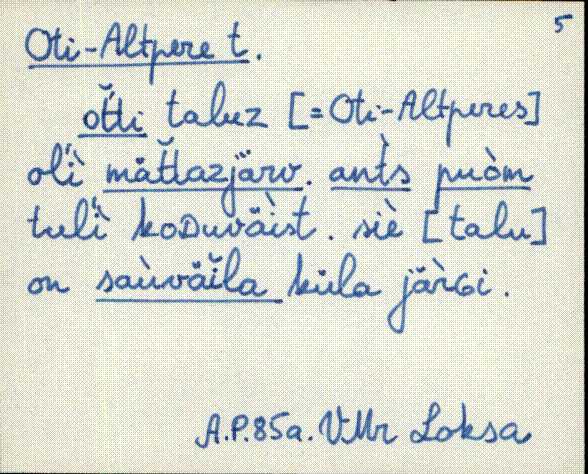 5
Oti-Altpere t.
ot̆ti taluz [=Oti-Altperes]
oĺì măt̆tazjärv. ant̀s puòm
tuĺì koᴅuväìst. siè [talu]
on saùväĭla küla järɢi.
A.P.85a. VMr Loksa